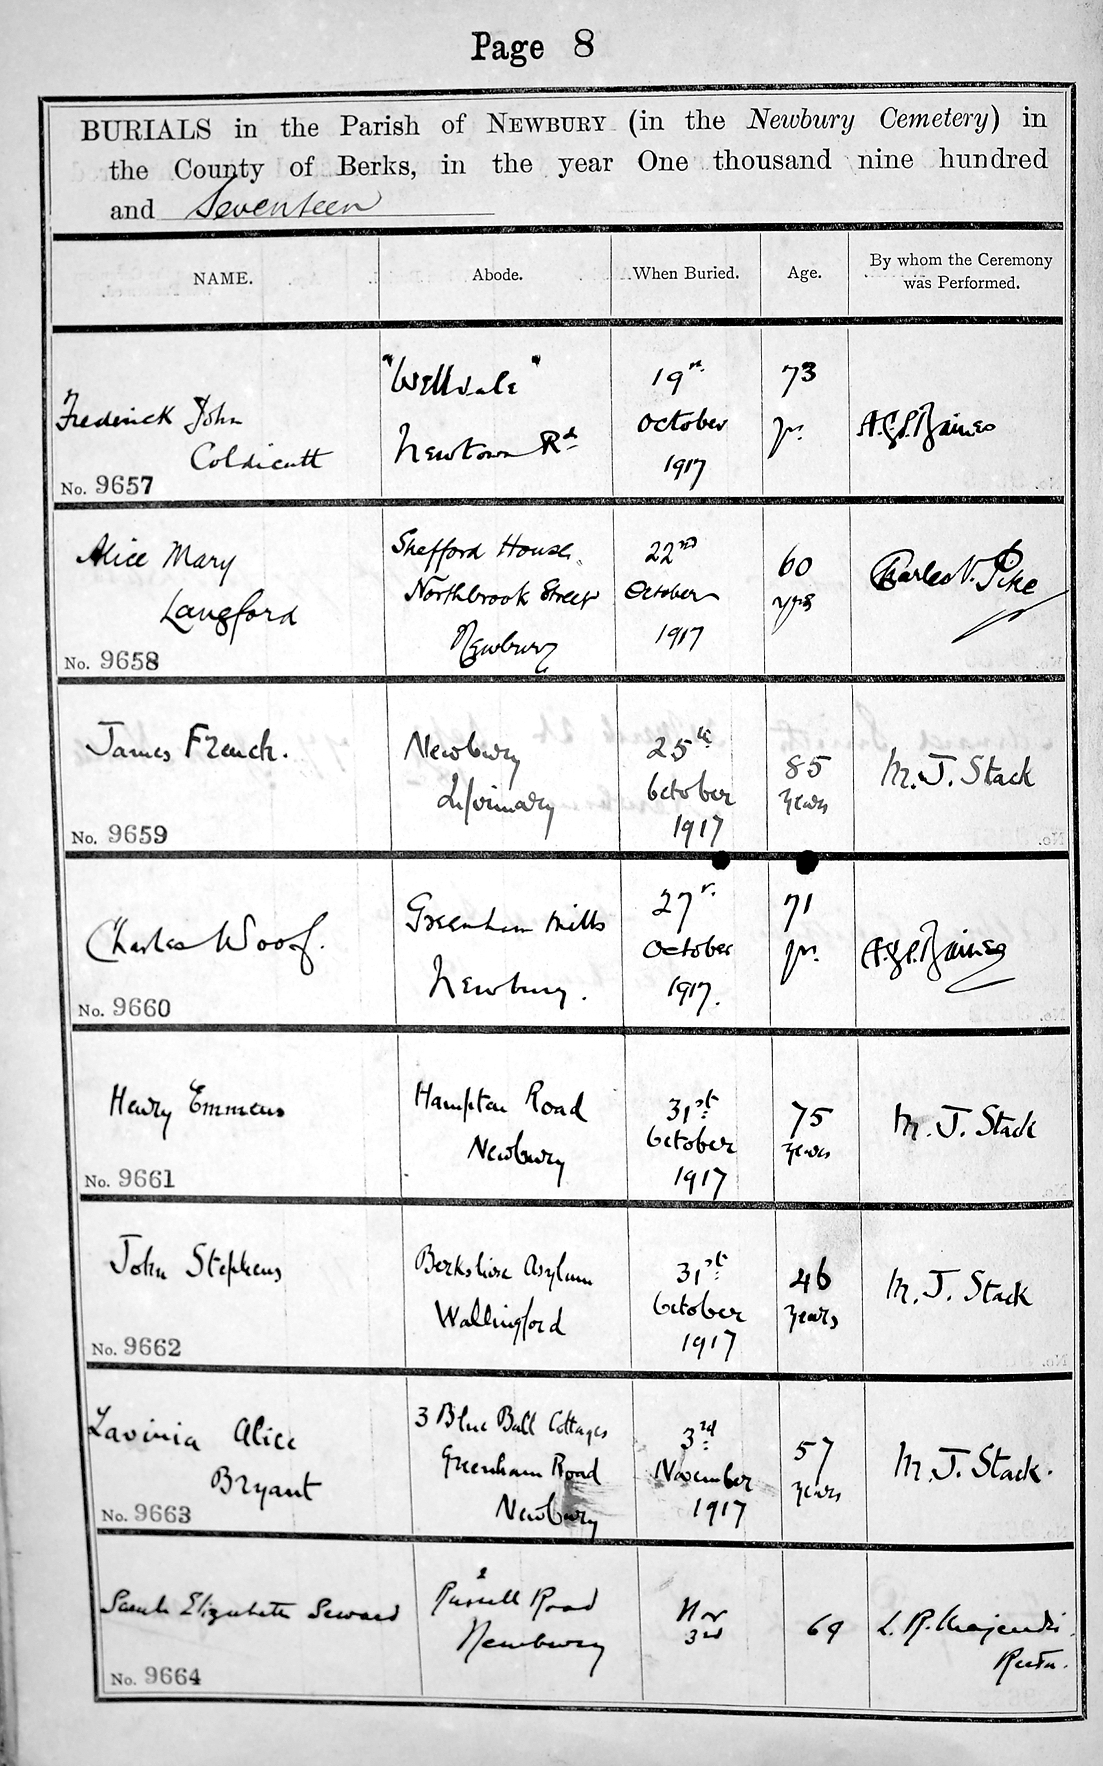 Page 8
BURIALS in the Parish of NEWBURY (in the Newbury Cemetery) in
the County of Berks, in the year One thousand nine hundred
and Seventeen
NAME.
Abode.
When Buried.
Age.
By whom the Ceremony
was Performed.
Frederick John
Coldicutt
No. 9657
"Wellvale"
Newtown Rd
19th
October
1917
73
yrs.
A.G.P. Baines
Alice Mary
Langford
No. 9658
Shefford House.
Northbrook Street
Newbury
22nd
October
1917
60
yrs
Charles V. Pike
James French.
No. 9659
Newbury
Infirmary
25th
October
1917
85
years
M. J. Stack
Charles Woof.
No. 9660
Greenham Mills
Newbury.
27th
October
1917.
71
yrs.
A.G.P. Baines
Henry Emmens
No. 9661
Hampton Road
Newbury
31st
October
1917
75
years
M. J. Stack
John Stephens
No. 9662
Berkshire Asylum
Wallingford
31st
October
1917
46
years
M. J. Stack
Lavinia Alice
Bryant
No. 9663
3 Blue Ball Cottages
Greenham Road
Newbury
3rd
November
1917
57
years
M. J. Stack.
Sarah Elizabeth Seward
No. 9664
2
Russell Road
Newbury
Nov
3rd
69
L. R. Majendie.
Rector.